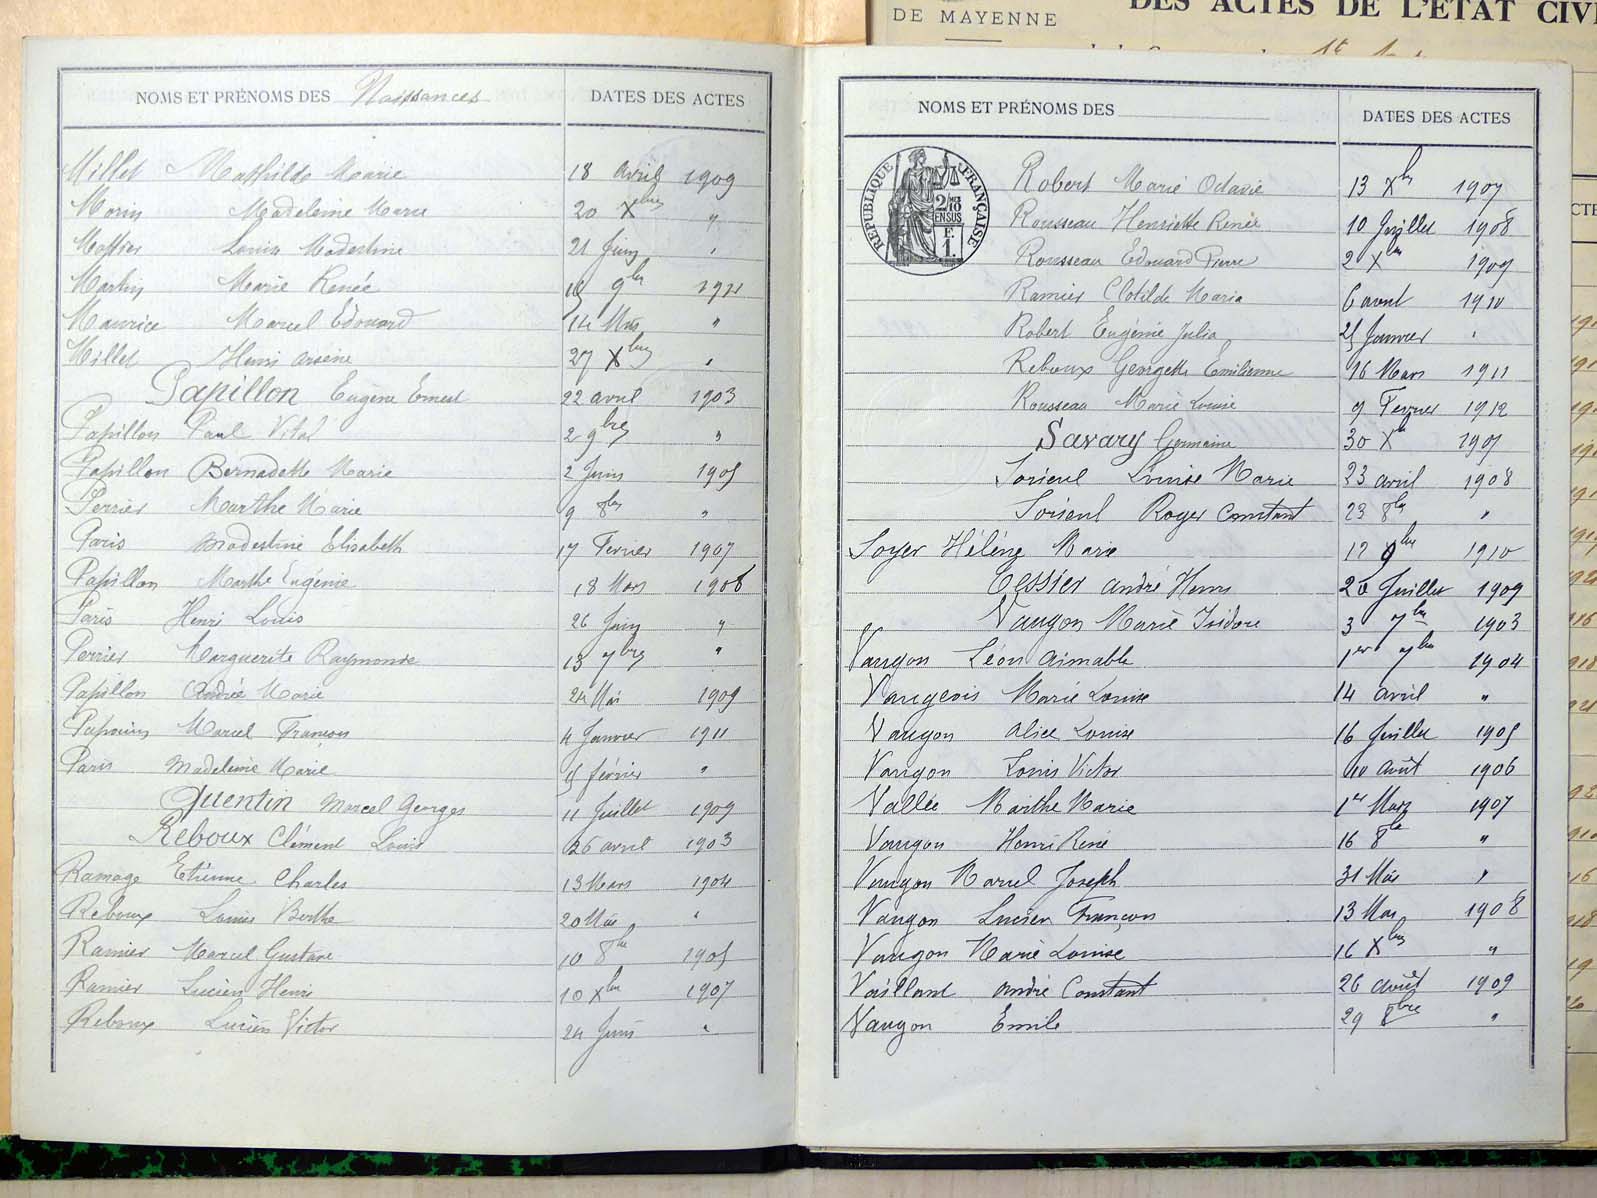 DE MAYENNE
DES ACTES DE L'ÉTAT CIVI
NOMS ET PRÉNOMS DES Naissances DATES DES ACTES
Millet Mathilde Marie 18 avril 1909
Morin Madeleine Marie 20 Xbres "
Louisa Modestine 21 Juin "
Martin Marie Renée 9bre 1911
Maurice Marcel Edouard 14 Mai "
Millet Henri arsène 27 Xbres "
Papillon Eugène Ernest 22 avril 1903
Papillon Paul Vital 2 9bres "
Papillon Bernadette Marie 2 Juin 1905
Perrier Marthe Marie 9 8bre "
Paris Modestine Elisabeth 17 Fevrier 1907
Papillon Marthe Eugénie 18 Mars 1908
Paris Henri Louis 26 Juin "
Perrier Marguerite Raymonde 13 7bres "
Papillon Andrée Marie 24 Mai 1909
Papouin Marcel François 4 Janvier 1911
Paris Madeleine Marie 15 février "
Quentin Marcel Georges 11 Juillet 1909
Reboux Clément Louis 26 avril 1903
Ramage Etienne Charles 13 Mars 1904
Reboux Louis Berthe 20 Mai "
Ramier Marcel Gustave 10 8bre 1905
Ramier Lucien Henri 10 Xbre 1907
Reboux Lucien Victor 24 Juin "
NOMS ET PRÉNOMS DES DATES DES ACTES
RÉPUBLIQUE FRANÇAISE
2/10 EN SUS
F. 1.
Robert Marie Octavie 13 Xbre 1907
Rousseau Henriette Renée 10 Juillet 1908
Rousseau Edouard Pierre 2 Xbre 1909
Ramier Clotilde Maria 6 avril 1910
Robert Eugénie Julia 25 Janvier "
Reboux Georgette Emilienne 16 Mars 1911
Rousseau Marie Louise 9 Fevrier 1912
Savary Germaine 30 Xbre 1907
Sorieul Louise Marie 23 avril 1908
Sorieul Roger Constant 23 8bre "
Soyer Hélène Marie 12 9bre 1910
Tessier André Henri Juillet 1909
Vaugon Marie Isidore 3 7bre 1903
Vaugon Léon aimable 1er 7bre 1904
Vaugeois Marie Louise 14 avril "
Vaugon Alice Louise 16 Juillet 1905
Vaugon Louis Victor 10 août 1906
Vallée Marthe Marie 1er Mars 1907
Vaugon Henri René 16 8bre "
Vaugon Marcel Joseph 31 Mai "
Vaugon Lucien François 13 Mai 1908
Vaugon Marie Louise 16 Xbres "
Vaillant André Constant 26 août 1909
Vaugon Emile 29 8bre "